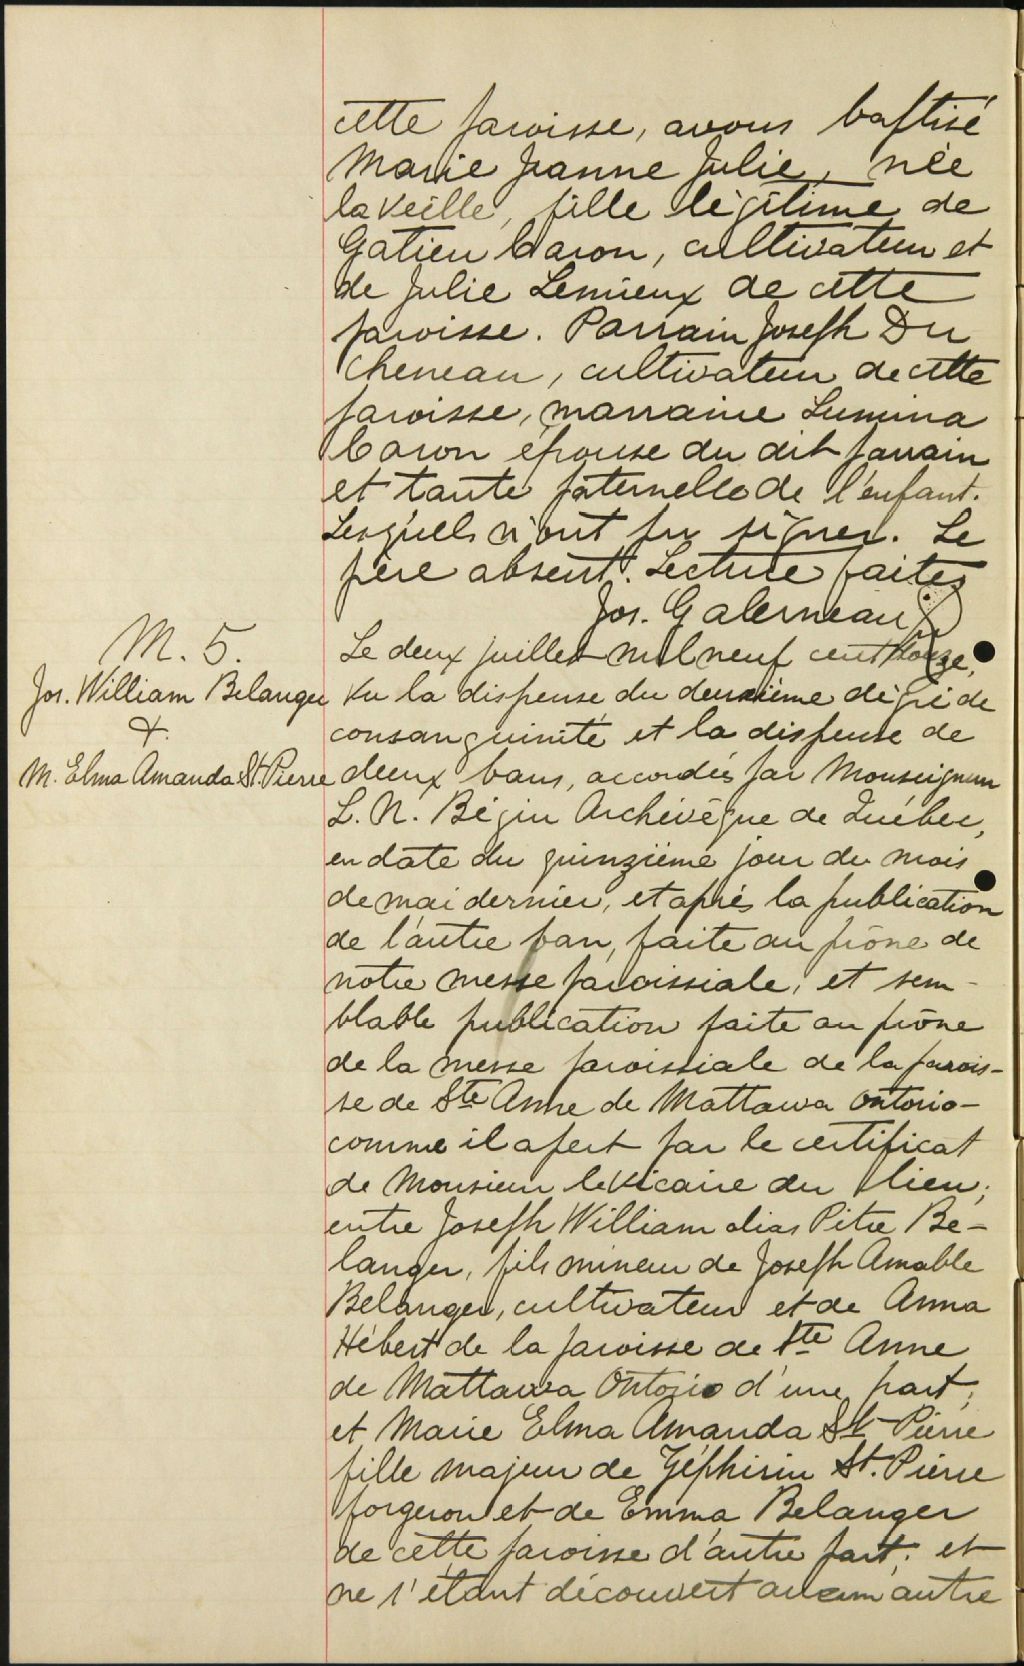 cette paroisse, avons baptisé
Marie Jeanne Julie, née
la veille, fille légitime de
Gatien Caron, cultivateur et
de Julie Lemieux de cette
paroisse. Parrain Joseph Du
Cheneau, cultivateur de cette
paroisse, marraine Lumina
Caron épouse du dit parrain
et tante paternelle de l'enfant.
Lesquels n'ont pu signer. Le
père absent. Lecture faite,
Jos. Galerneau
M. 5.
Jos. William Belanger
&
M. Elma Amanda St. Pierre
Le deux juillet mil neuf cent douze,
vu la dispense du deuxième dégré de
consanguinité et la dispense de
deux bans, accordés par Monseigneur
L. N. Bégin Archévêque de Québec,
en date du quinzième jour du mois
de mai dernier, et après la publication
de l'autre ban, faite au prône de
notre messe paroissiale, et sem-
blable publication faite au prône
de la messe paroissiale de la parois-
se de Ste Anne de Mattawa Ontario-
comme il apert par le certificat
de Monsieur le vicaire du lieu;
entre Joseph William alias Pitre Be-
langer, fils mineur de Joseph Amable
Belanger, cultivateur et de Anna
Hébert de la paroisse de Ste Anne
de Mattawa Ontario d'une part;
et Marie Elma Amanda St Pierre
fille majeur de Zéphirin St. Pierre
forgeron et de Emma Belanger
de cette paroisse d'autre part; et
ne s'étant découvert aucun autre